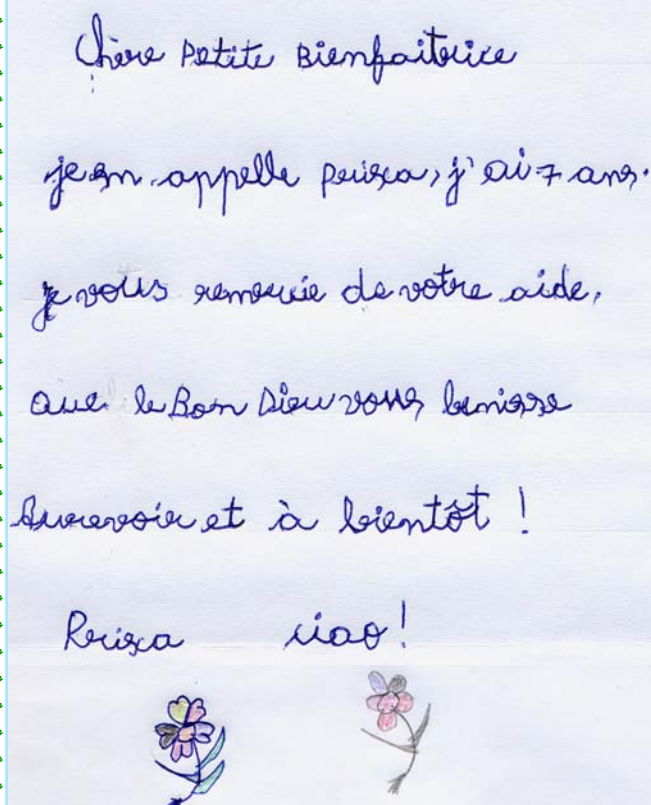 Chère Petite Bienfaitrice
je m'appelle Prisca, j'ai 7 ans.
je vous remercie de votre aide,
que le Bon Dieu vous benisse
Aurevoir et à bientôt !
Prisca ciao!